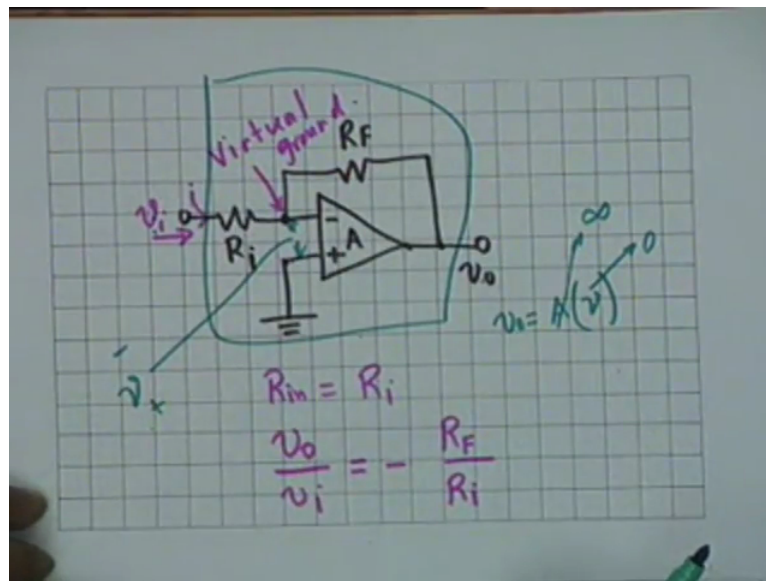 Virtual
ground.
RF
vi
i
Ri
-
A
+
vo
∞
0
vo = A(v)
vx
Rin = Ri
vo/vi = - RF/Ri